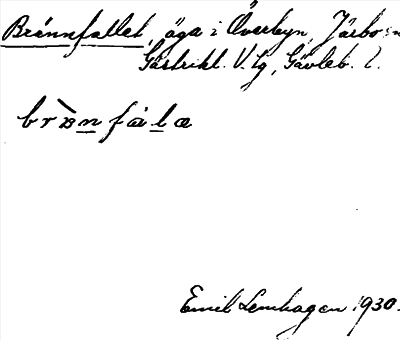 Brännfallet, äga i Överbyn, Järbo sn
Gästrikl. V. tg, Gävleb. l.
bràⱥn fál æ
Emil Lemhagen 1930.